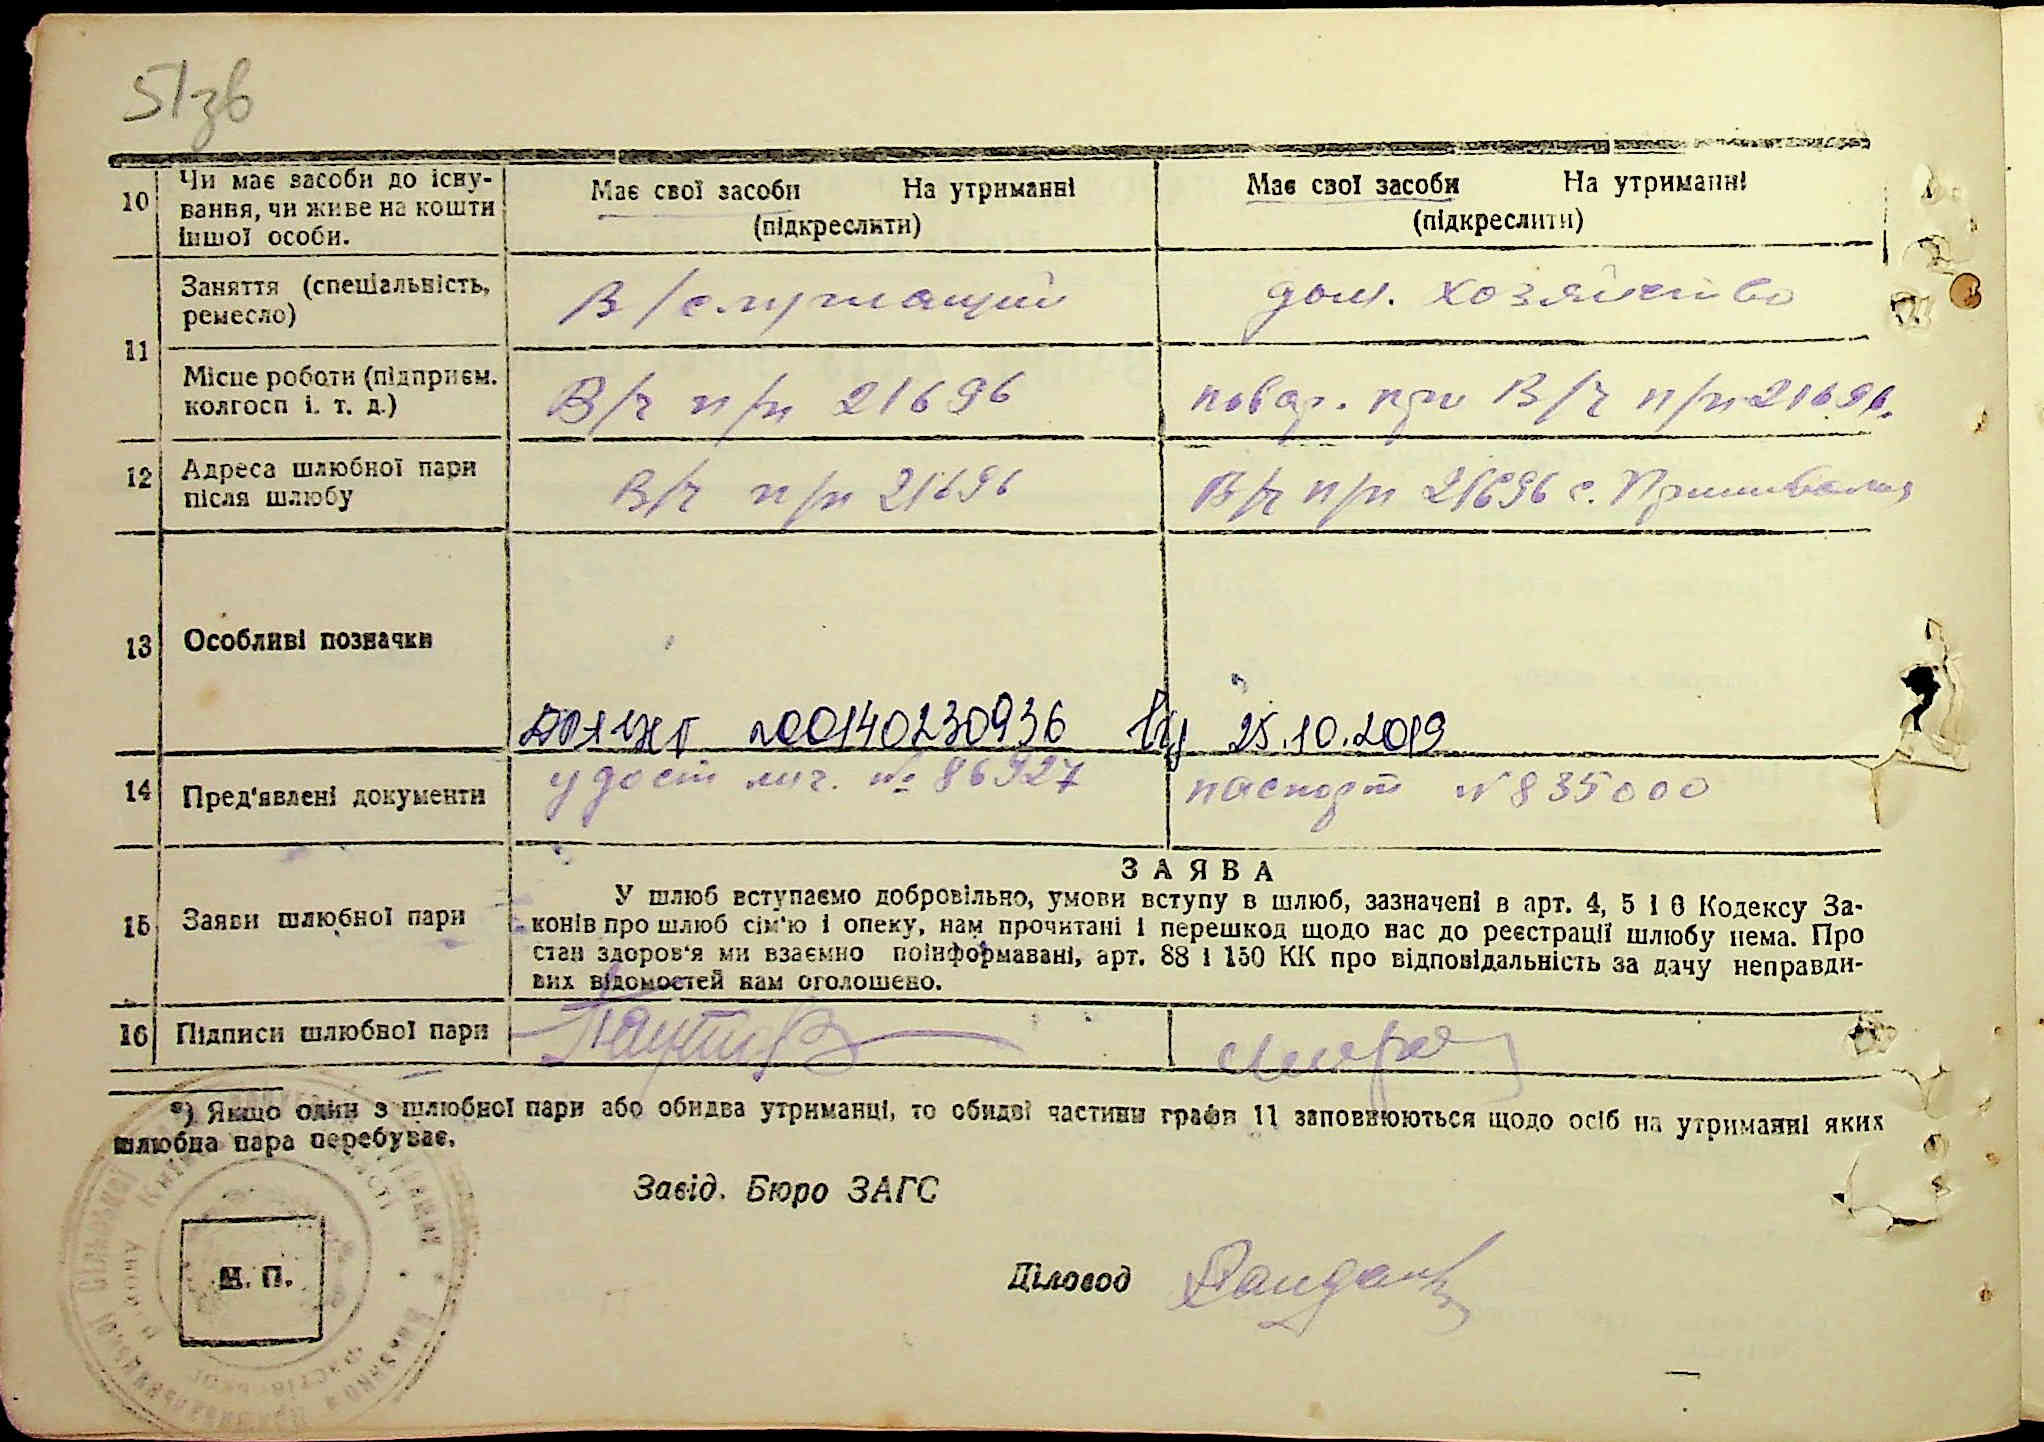 51зв
10
Чи має засоби до існу-
вання, чи живе на кошти
іншої особи.
Має свої засоби На утриманні
(підкреслити)
Має свої засоби На утриманні
(підкреслити)
11
Заняття (спеціальність,
ремесло)
В/служащий
дом. хозяйство
Місце роботи (підприєм.
колгосп і. т. д.)
В/ч п/п 21696
повар. при В/ч п/п 21696.
12
Адреса шлюбної пари
після шлюбу
В/ч п/п 21696
В/ч п/п 21696 с.
13
Особливі позначки
00140230936 25.10.2019
14
Пред'явлені документи
удост лич. № 86927
паспорт № 835000
15
Заяви шлюбної пари
ЗАЯВА
У шлюб вступаємо добровільно, умови вступу в шлюб, зазначені в арт. 4, 5 і 6 Кодексу За-
конів про шлюб сім'ю і опеку, нам прочитані і перешкод щодо нас до реєстрації шлюбу нема. Про
стан здоров'я ми взаємно поінформавані, арт. 88 і 150 КК про відповідальність за дачу неправди-
вих відомостей нам оголошено.
16
Підписи шлюбної пари
*) Якщо один з шлюбної пари або обидва утриманці, то обидві частини графи 11 заповнюються щодо осіб на утриманні яких
шлюбна пара перебуває.
Завід. Бюро ЗАГС
Діловод
М. П.